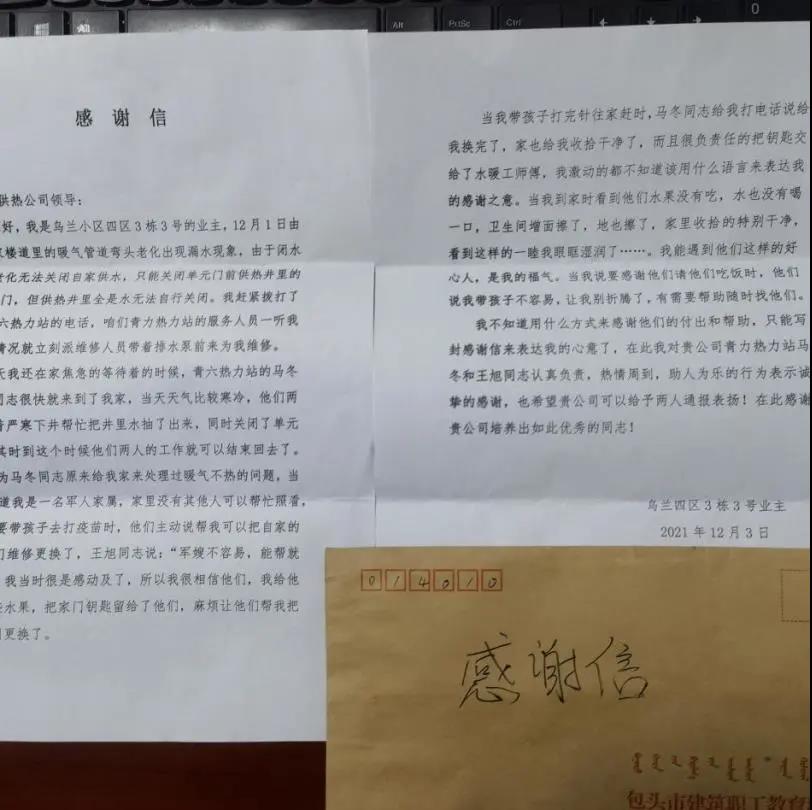 Alt
PrtSc
Ctrl
0
感 谢 信
供热公司领导：
好，我是乌兰小区四区3栋3号的业主，12月1日由
楼道里的暖气管道弯头老化出现漏水现象，由于闭水
老化无法关闭自家供水，只能关闭单元门前供热井里的
门，但供热井里全是水无法自行关闭。我赶紧拨打了
六热力站的电话，咱们青力热力站的服务人员一听我
情况就立刻派维修人员带着排水泵前来为我维修。
天我还在家焦急的等待着的时候，青六热力站的马冬
同志很快就来到了我家，当天天气比较寒冷，他们两
着严寒下井帮忙把井里水抽了出来，同时关闭了单元
其时到这个时候他们两人的工作就可以结束回去了。
为马冬同志原来给我家来处理过暖气不热的问题，当
道我是一名军人家属，家里没有其他人可以帮忙照看，
要带孩子去打疫苗时，他们主动说帮我可以把自家的
门维修更换了，王旭同志说：“军嫂不容易，能帮就
我当时很是感动及了，所以我很相信他们，我给他
水果，把家门钥匙留给了他们，麻烦让他们帮我把
更换了。
当我带孩子打完针往家赶时，马冬同志给我打电话说给
我换完了，家也给我收拾干净了，而且很负责任的把钥匙交
给了水暖工师傅，我激动的都不知道该用什么语言来表达我
的感谢之意。当我到家时看到他们水果没有吃，水也没有喝
一口，卫生间墙面擦了，地也擦了，家里收拾的特别干净，
看到这样的一睦我眼眶湿润了……。我能遇到他们这样的好
心人，是我的福气。当我说要感谢他们请他们吃饭时，他们
说我带孩子不容易，让我别折腾了，有需要帮助随时找他们。
我不知道用什么方式来感谢他们的付出和帮助，只能写
封感谢信来表达我的心意了，在此我对贵公司青力热力站马
冬和王旭同志认真负责，热情周到，助人为乐的行为表示诚
挚的感谢，也希望贵公司可以给予两人通报表扬！在此感谢
贵公司培养出如此优秀的同志！
乌兰四区3栋3号业主
2021年12月3日
014010
感谢信
包头市建筑职工教育